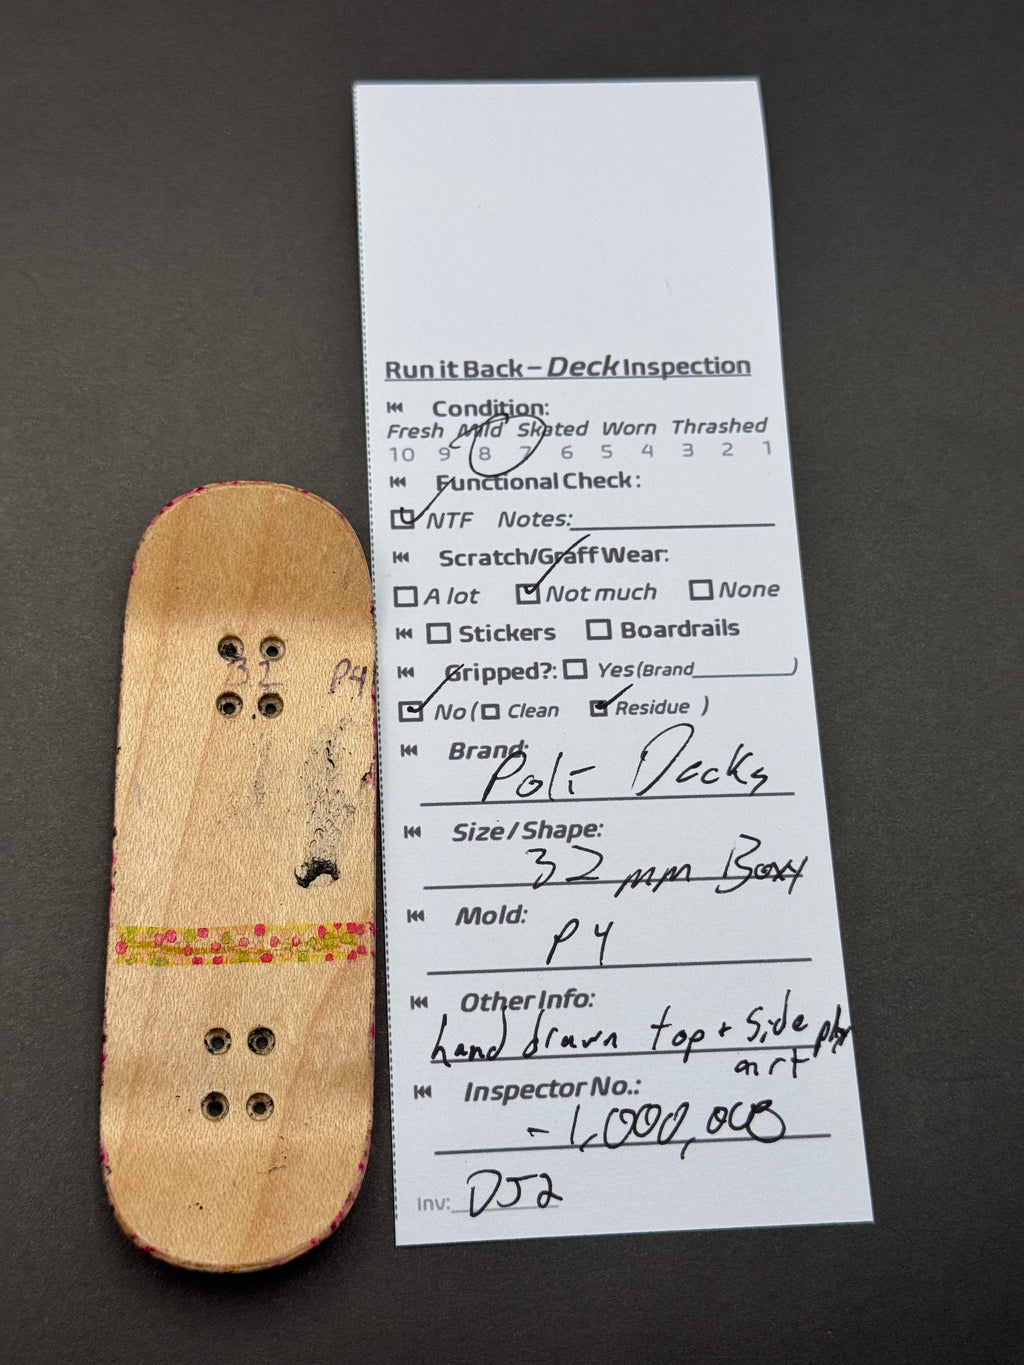 Run it Back – Deck Inspection
Condition:
Fresh Mild Skated Worn Thrashed
10 9 8 7 6 5 4 3 2 1
Functional Check:
NTF Notes:
Scratch/Graff Wear:
A lot Not much None
Stickers Boardrails
Gripped?: Yes (Brand )
No ( Clean Residue )
Brand:
Poli Decks
Size / Shape:
32 mm Boxy
Mold:
P4
Other Info:
hand drawn top + side ply
art
Inspector No.:
Inv: DJ2
32 P4